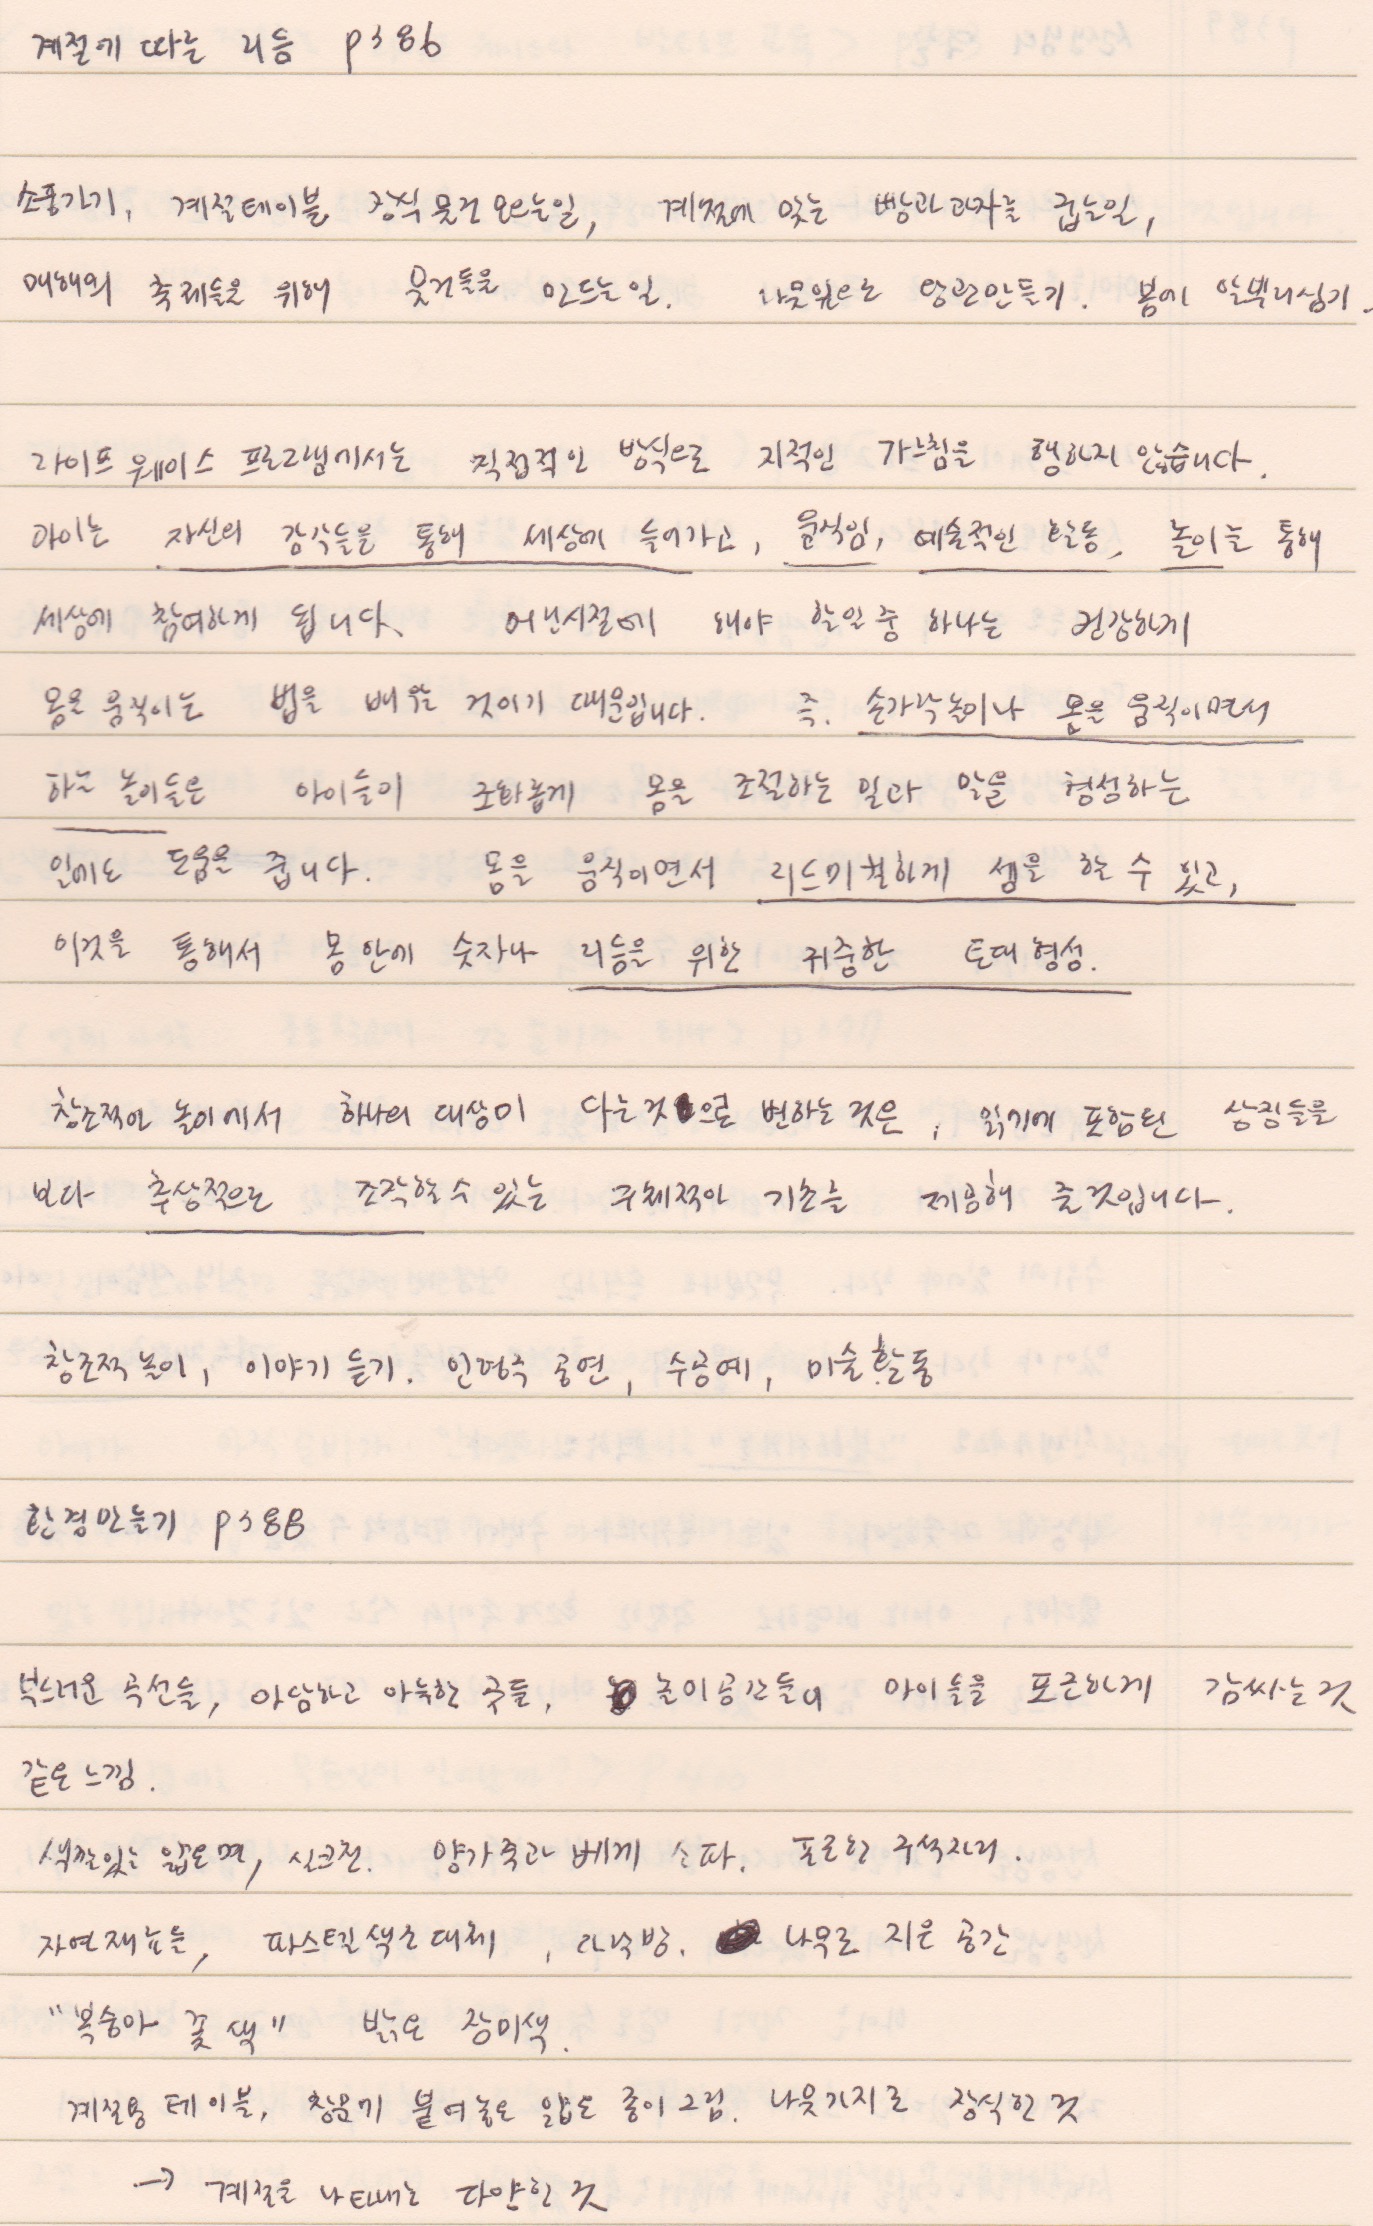 계절에 따른 리듬 p386
소풍가기, 계절테이블 장식 물건 모으는일, 계절에 맞는 빵과 과자를 굽는일,
매해의 축제들을 위해 물건들을 만드는일. 나뭇잎으로 왕관만들기. 봄에 알뿌리심기.
라이프웨이스 프로그램에서는 직접적인 방식으로 지적인 가르침을 행하지 않습니다.
아이는 자신의 감각들을 통해 세상에 들어가고, 움직임, 예술적인 활동, 놀이를 통해
세상에 참여하게 됩니다. 어린시절에 해야 할일중 하나는 건강하게
몸을 움직이는 법을 배우는 것이기 때문입니다. 즉. 손가락놀이나 몸을 움직이면서
하는 놀이들은 아이들이 조화롭게 몸을 조절하는 일과 말을 형성하는
일에도 도움을 줍니다. 몸을 움직이면서 리드미컬하게 셈을 할 수 있고,
이것을 통해서 몸 안에 숫자나 리듬을 위한 귀중한 토대 형성.
창조적인 놀이에서 하나의 대상이 다른것으로 변하는 것은, 읽기에 포함된 상징들을
보다 추상적으로 조작할수 있는 구체적인 기초를 제공해 줄것입니다.
창조적 놀이, 이야기 듣기. 인형극 공연, 수공예, 미술활동
환경만들기 p388
부드러운 곡선들, 아담하고 아늑한 곳들, 놀이공간들이 아이들을 포근하게 감싸는것
같은 느낌.
색깔있는 얇은면, 실크천. 양가죽과 베게 소파. 포근한 구석자리.
자연재료들, 파스텔 색조 대체, 다락방. 나무로 지은 공간
"복숭아 꽃 색" 밝은 장미색.
계절용 테이블, 창문에 붙여놓은 얇은 종이그림. 나뭇가지로 장식한 것
→ 계절을 나타내는 다양한 것